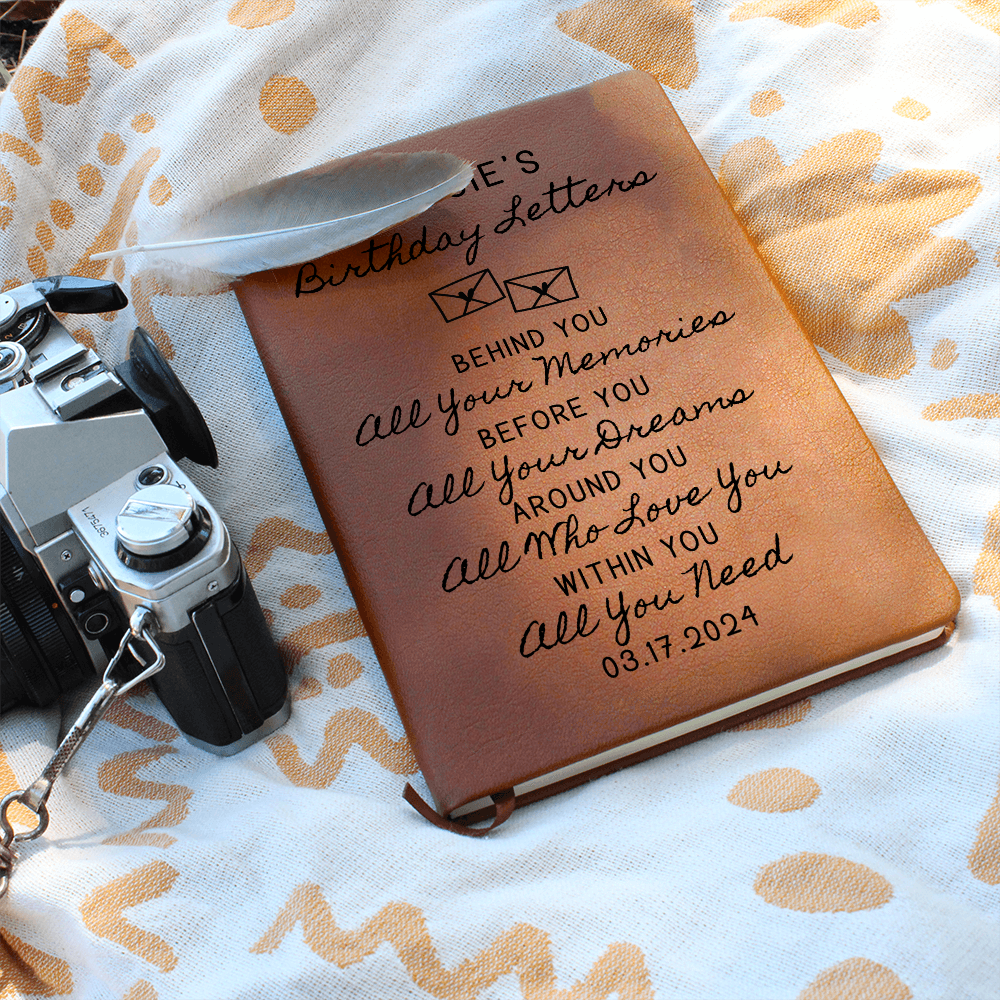 Birthday Letters
BEHIND YOU
All Your Memories
BEFORE YOU
All Your Dreams
AROUND YOU
All Who Love You
WITHIN YOU
All You Need
03.17.2024
3675471